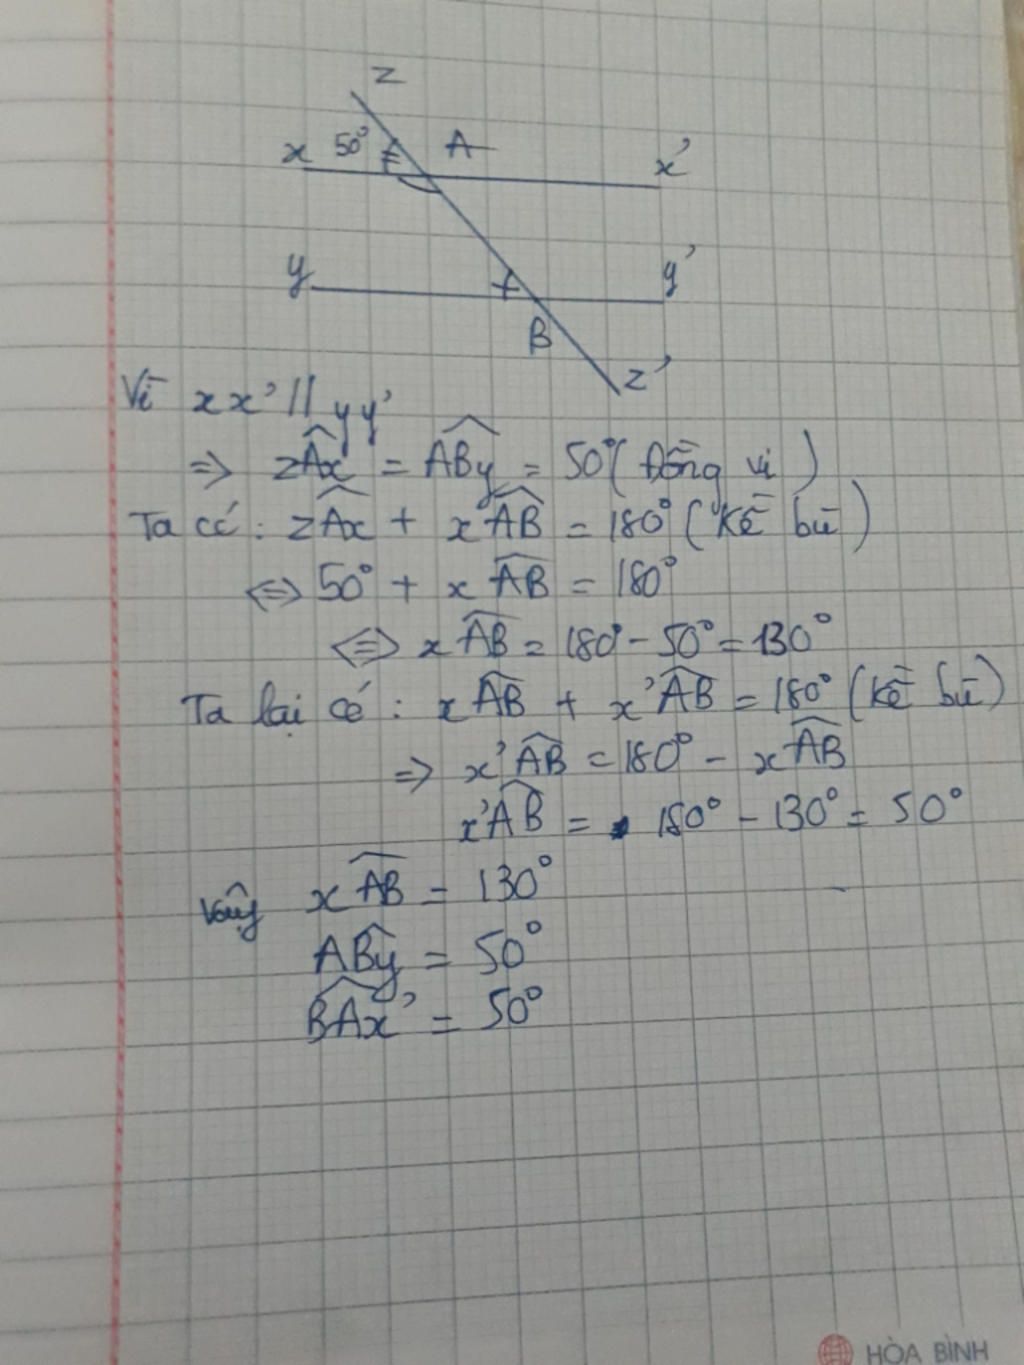 z
x 50° A x'
y y'
B
z'
Vì xx' // yy'
⇒ zÂx = AB̂y = 50° (Đồng vị)
Ta có: zÂx + xÂB = 180° (Kề bù)
⇔ 50° + xÂB = 180°
⇔ xÂB = 180° - 50° = 130°
Ta lại có: xÂB + x'ÂB = 180° (Kề bù)
⇒ x'ÂB = 180° - xÂB
x'ÂB = 180° - 130° = 50°
Vậy xÂB = 130°
AB̂y = 50°
BÂx' = 50°
HÒA BÌNH